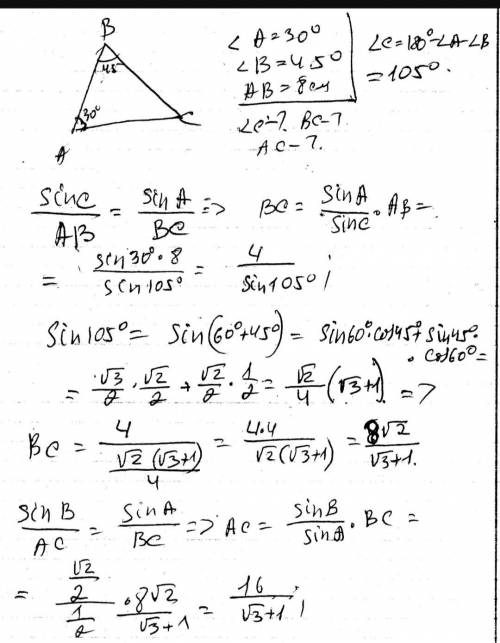 B
45
30°
A
C
∠A=30°
∠B=45°
AB=8см
∠C-? BC-?
AC-?
∠C=180°-∠A-∠B
=105°.
sinC/AB = sinA/BC => BC = sinA/sinC · AB =
= sin30°·8/sin105° = 4/sin105° ;
Sin105° = Sin(60°+45°) = Sin60°cos45°+Sin45°·
· cos60° =
= √3/2 · √2/2 + √2/2 · 1/2 = √2/4 (√3+1) =>
BC = 4/(√2(√3+1)/4) = 4·4/√2(√3+1) = 8√2/√3+1.
sinB/AC = sinA/BC => AC = sinB/sinA · BC =
= (√2/2)/(1/2) · 8√2/√3+1 = 16/√3+1 ;